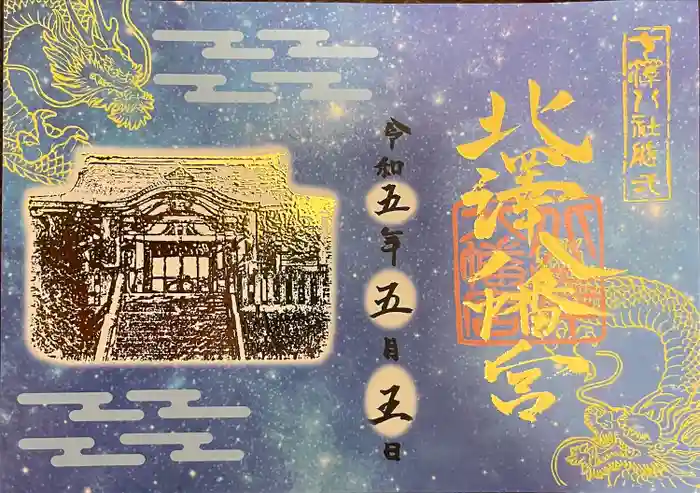 七澤八社随弌
北澤八幡宮
令和五年五月五日